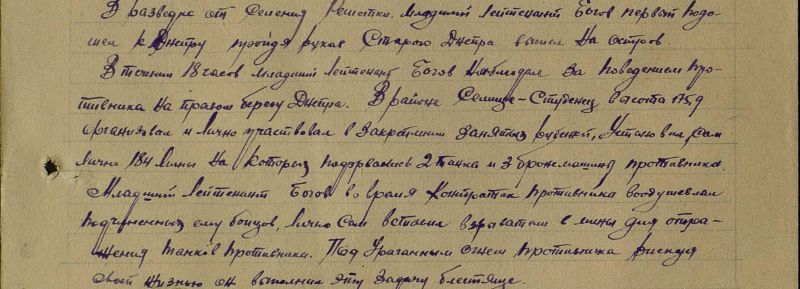 В разведке от Селения Решотки. Младший Лейтенант Богов первый подо-
шел к Днепру пройдя рукав Старого Днепра вышел на остров.
В течении 18 часов младший Лейтенант Богов наблюдал за поведением про-
тивника на правом берегу Днепра. В районе Селище-Студенец высота 175,9
организовал и лично участвовал в закреплении занятых рубежей, установил сам
лично 184 мины на которых подорвались 2 танка и 3 бронемашины противника.
Младший Лейтенант Богов во время контратак противника воодушевлял
подчиненных ему бойцов, лично сам вставлял взрыватели в мины для отра-
жения танков противника. Под ураганным огнем противника рискуя
своей жизнью он выполнил эту задачу блестяще.